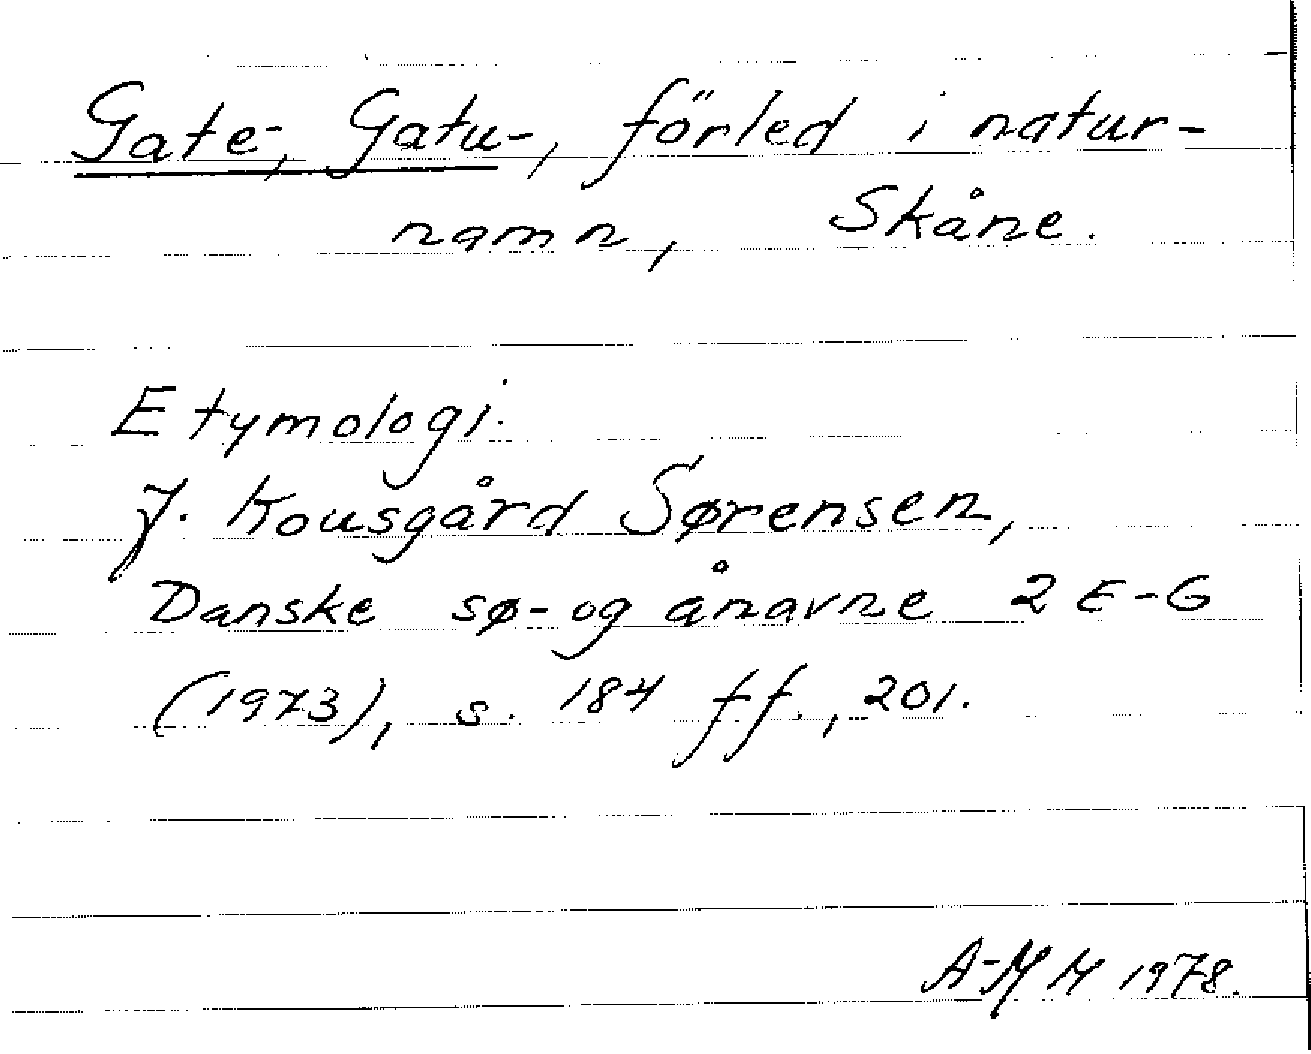 Gate-, Gatu-, förled i natur-
namn, Skåne.
Etymologi.
J. Kousgård Sørensen,
Danske sø- og ånavne 2 E-G
(1973), s. 184 ff., 201.
A-MM 1978.